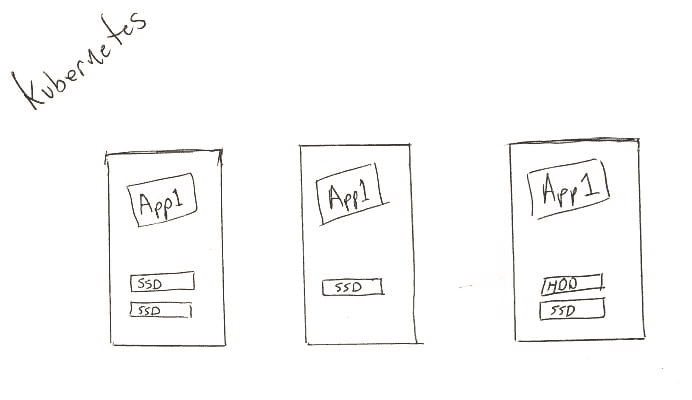 Kubernetes
App1
SSD
SSD
App1
SSD
App1
HDD
SSD